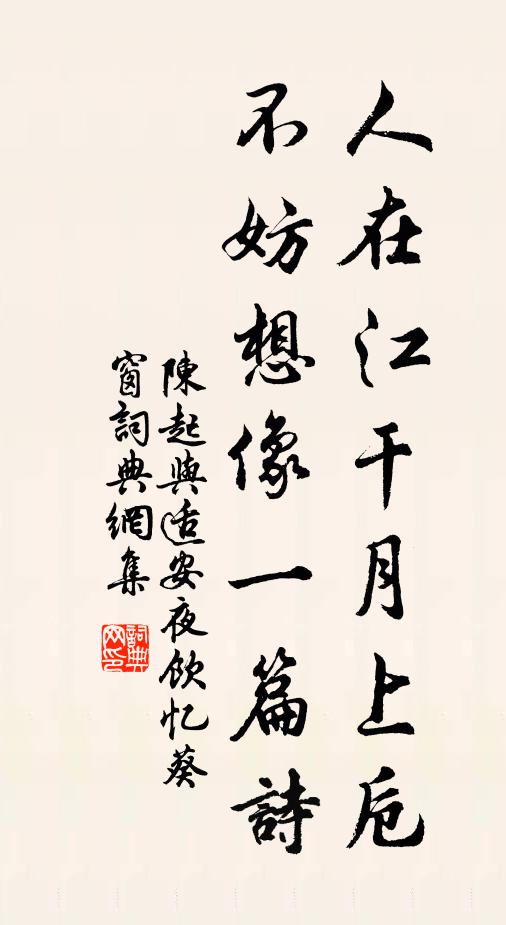 人在江干月上卮
不妨想像一篇詩
陳起與适安夜飲忆葵
窗詞典網集
詞典
网印